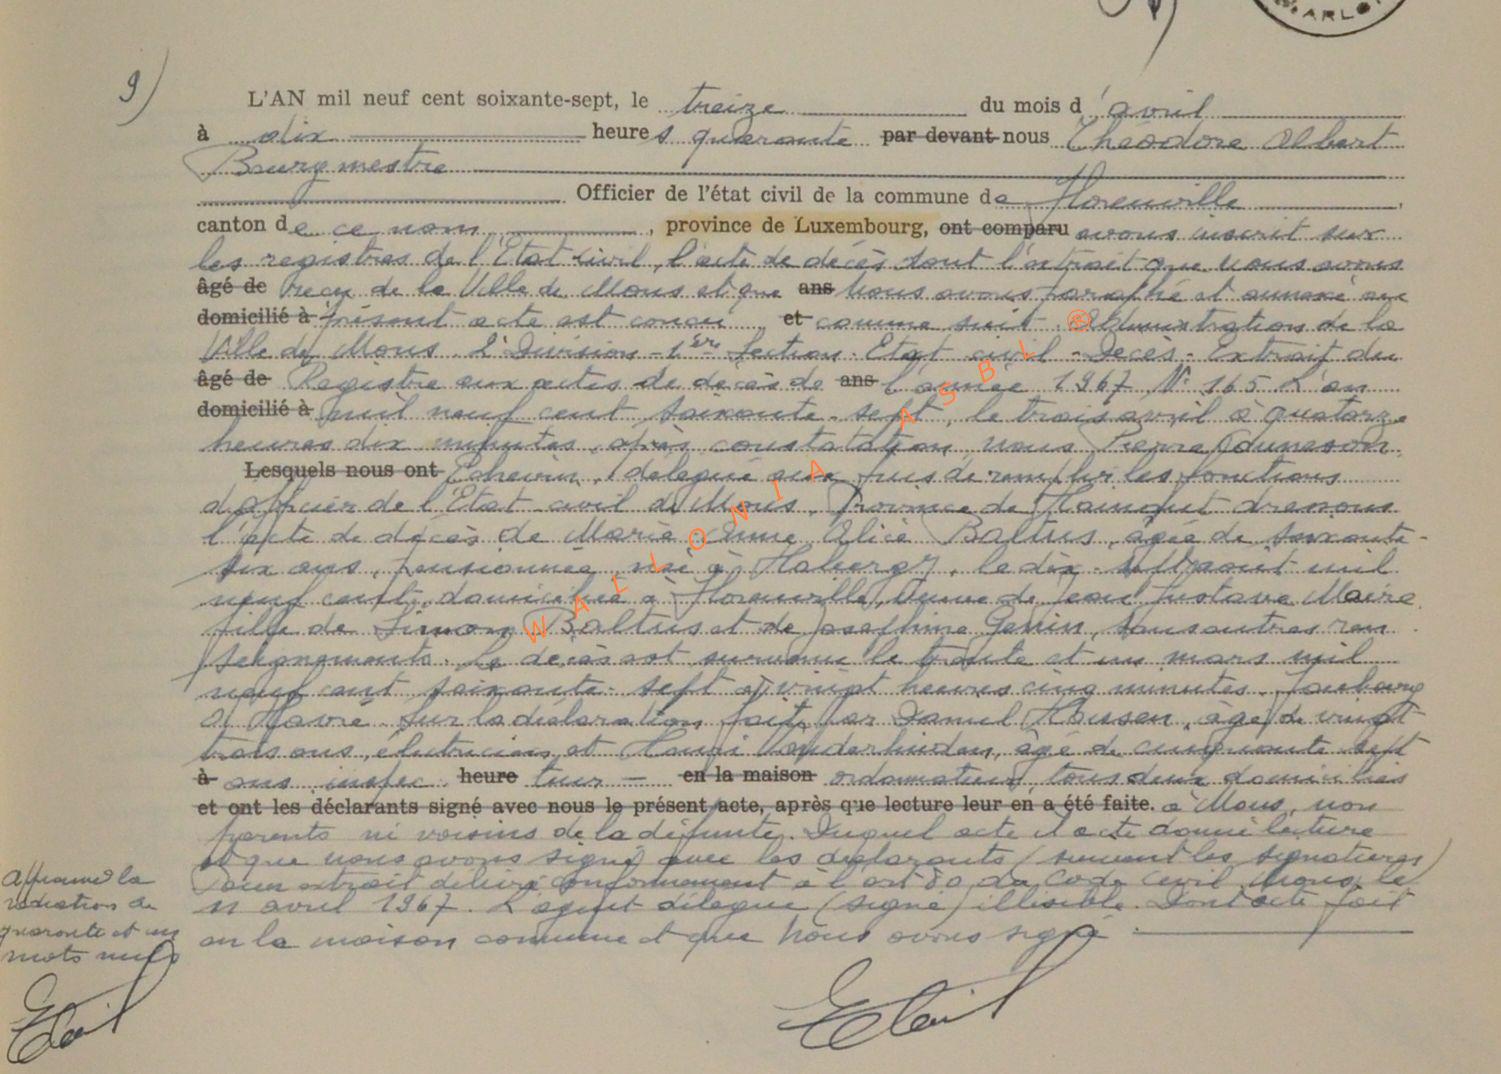 ARLO
9)
L'AN mil neuf cent soixante-sept, le treize du mois d'avril
à dix heures quarante par devant nous Théodore Albert
Bourgmestre
Officier de l'état civil de la commune de Florenville,
canton de ce nom, province de Luxembourg, ont comparu avons inscrit sur
les registres de l'Etat civil, l'acte de décès dont l'extrait que nous avons
âgé de reçu de la Ville de Mons et que ans nous avons paraphé et annexé au
domicilié à présent acte est conçu et comme suit. Administration de la
Ville de Mons. 2e Division - 1ère Section. Etat civil - Décès - Extrait du
âgé de Registre aux actes de décès de ans l'année 1967 N° 165 L'an
domicilié à mil neuf cent soixante-sept, le trois avril à quatorze
heures dix minutes, après constatation, nous Pierre
Lesquels nous ont Echevin, délégué aux fins de remplir les fonctions
d'officier de l'Etat civil de Mons, Province de Hainaut dressons
l'acte de décès de Marie Anne Alice Baltus, âgée de soixante-
six ans, pensionnée, née à Habergy, le dix-sept août mil
neuf cent, domiciliée à Florenville, veuve de Jean Gustave Maire
fille de Simon Baltus et de Joséphine Genin, sans autres ren
seignements. Le décès est survenu le trente et un mars mil
neuf cent soixante-sept à vingt heures cinq minutes, Faubourg
d'Havré. Sur la déclaration faite par Daniel Housen, âgé de vingt
trois ans, électricien, et Henri Vanderheiden, âgé de cinquante-sept
à ans, inspec heure teur - en la maison ordonnateur, tous deux domiciliés
et ont les déclarants signé avec nous le présent acte, après que lecture leur en a été faite. à Mons, non
parents ni voisins de la défunte. Duquel acte il a été donné lecture
et que nous avons signé avec les déclarants (suivent les signatures)
Pour extrait délivré conformément à l'art 80 du Code civil Mons, le
11 avril 1967. L'agent délégué (signé) illisible. Dont acte fait
en la maison commune et que nous avons signé
Approuvé la
radiation de
quarante et un
mots nuls
WALLONIA ASBL ®